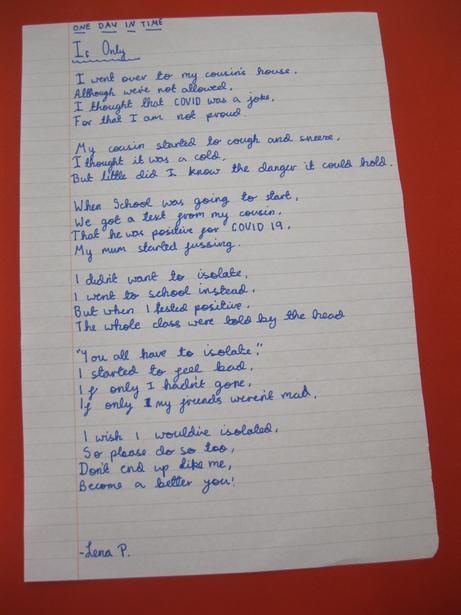 ONE DAY IN TIME
If Only
I went over to my cousin's house,
Although were not allowed,
I thought that COVID was a joke,
For that I am not proud.
My cousin started to cough and sneeze,
I thought it was a cold,
But little did I know the danger it could hold.
When School was going to start,
We got a text from my cousin,
That he was positive for COVID 19,
My mum started fussing.
I didn't want to isolate,
I went to school instead,
But when I tested positive,
The whole class were told by the head
"You all have to isolate,"
I started to feel bad,
If only I hadn't gone,
If only my friends weren't mad.
I wish I would've isolated,
So please do so too,
Don't end up like me,
Become a better you!
-Lena P.